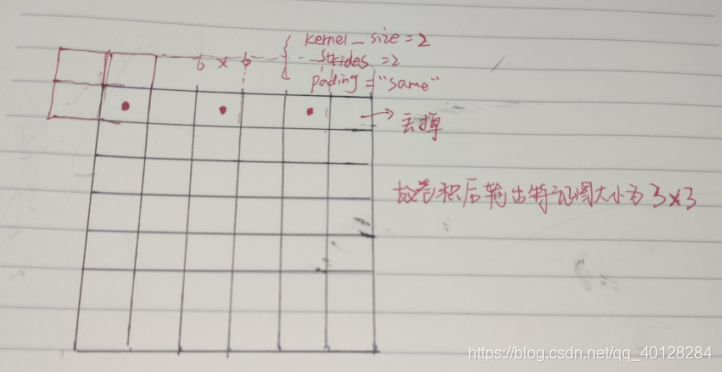 6 × 6 { kernel_size=2
strides =2
pading ="same"
→丢掉
故卷积后输出特征图大小为 3×3
https://blog.csdn.net/qq_40128284